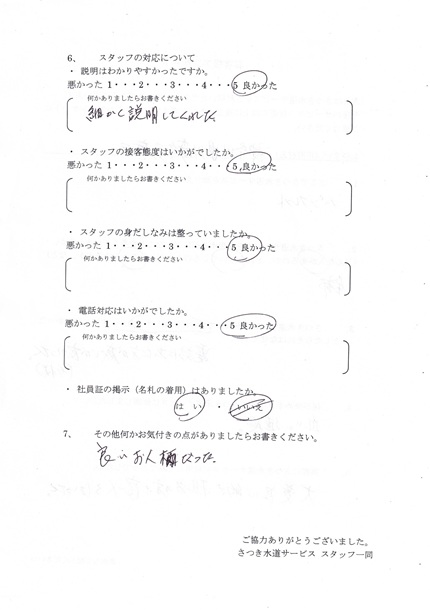 6、 スタッフの対応について
・ 説明はわかりやすかったですか。
悪かった 1・・・2・・・3・・・4・・・5 良かった
何かありましたらお書きください
細かく説明してくれた
・ スタッフの接客態度はいかがでしたか。
悪かった 1・・・2・・・3・・・4・・・5 良かった
何かありましたらお書きください
・ スタッフの身だしなみは整っていましたか。
悪かった 1・・・2・・・3・・・4・・・5 良かった
何かありましたらお書きください
・ 電話対応はいかがでしたか。
悪かった 1・・・2・・・3・・・4・・・5 良かった
何かありましたらお書きください
・ 社員証の掲示（名札の着用）はありましたか。
はい ・ いいえ
7、 その他何かお気付きの点がありましたらお書きください。
良いお人柄だった
ご協力ありがとうございました。
さつき水道サービス スタッフ一同